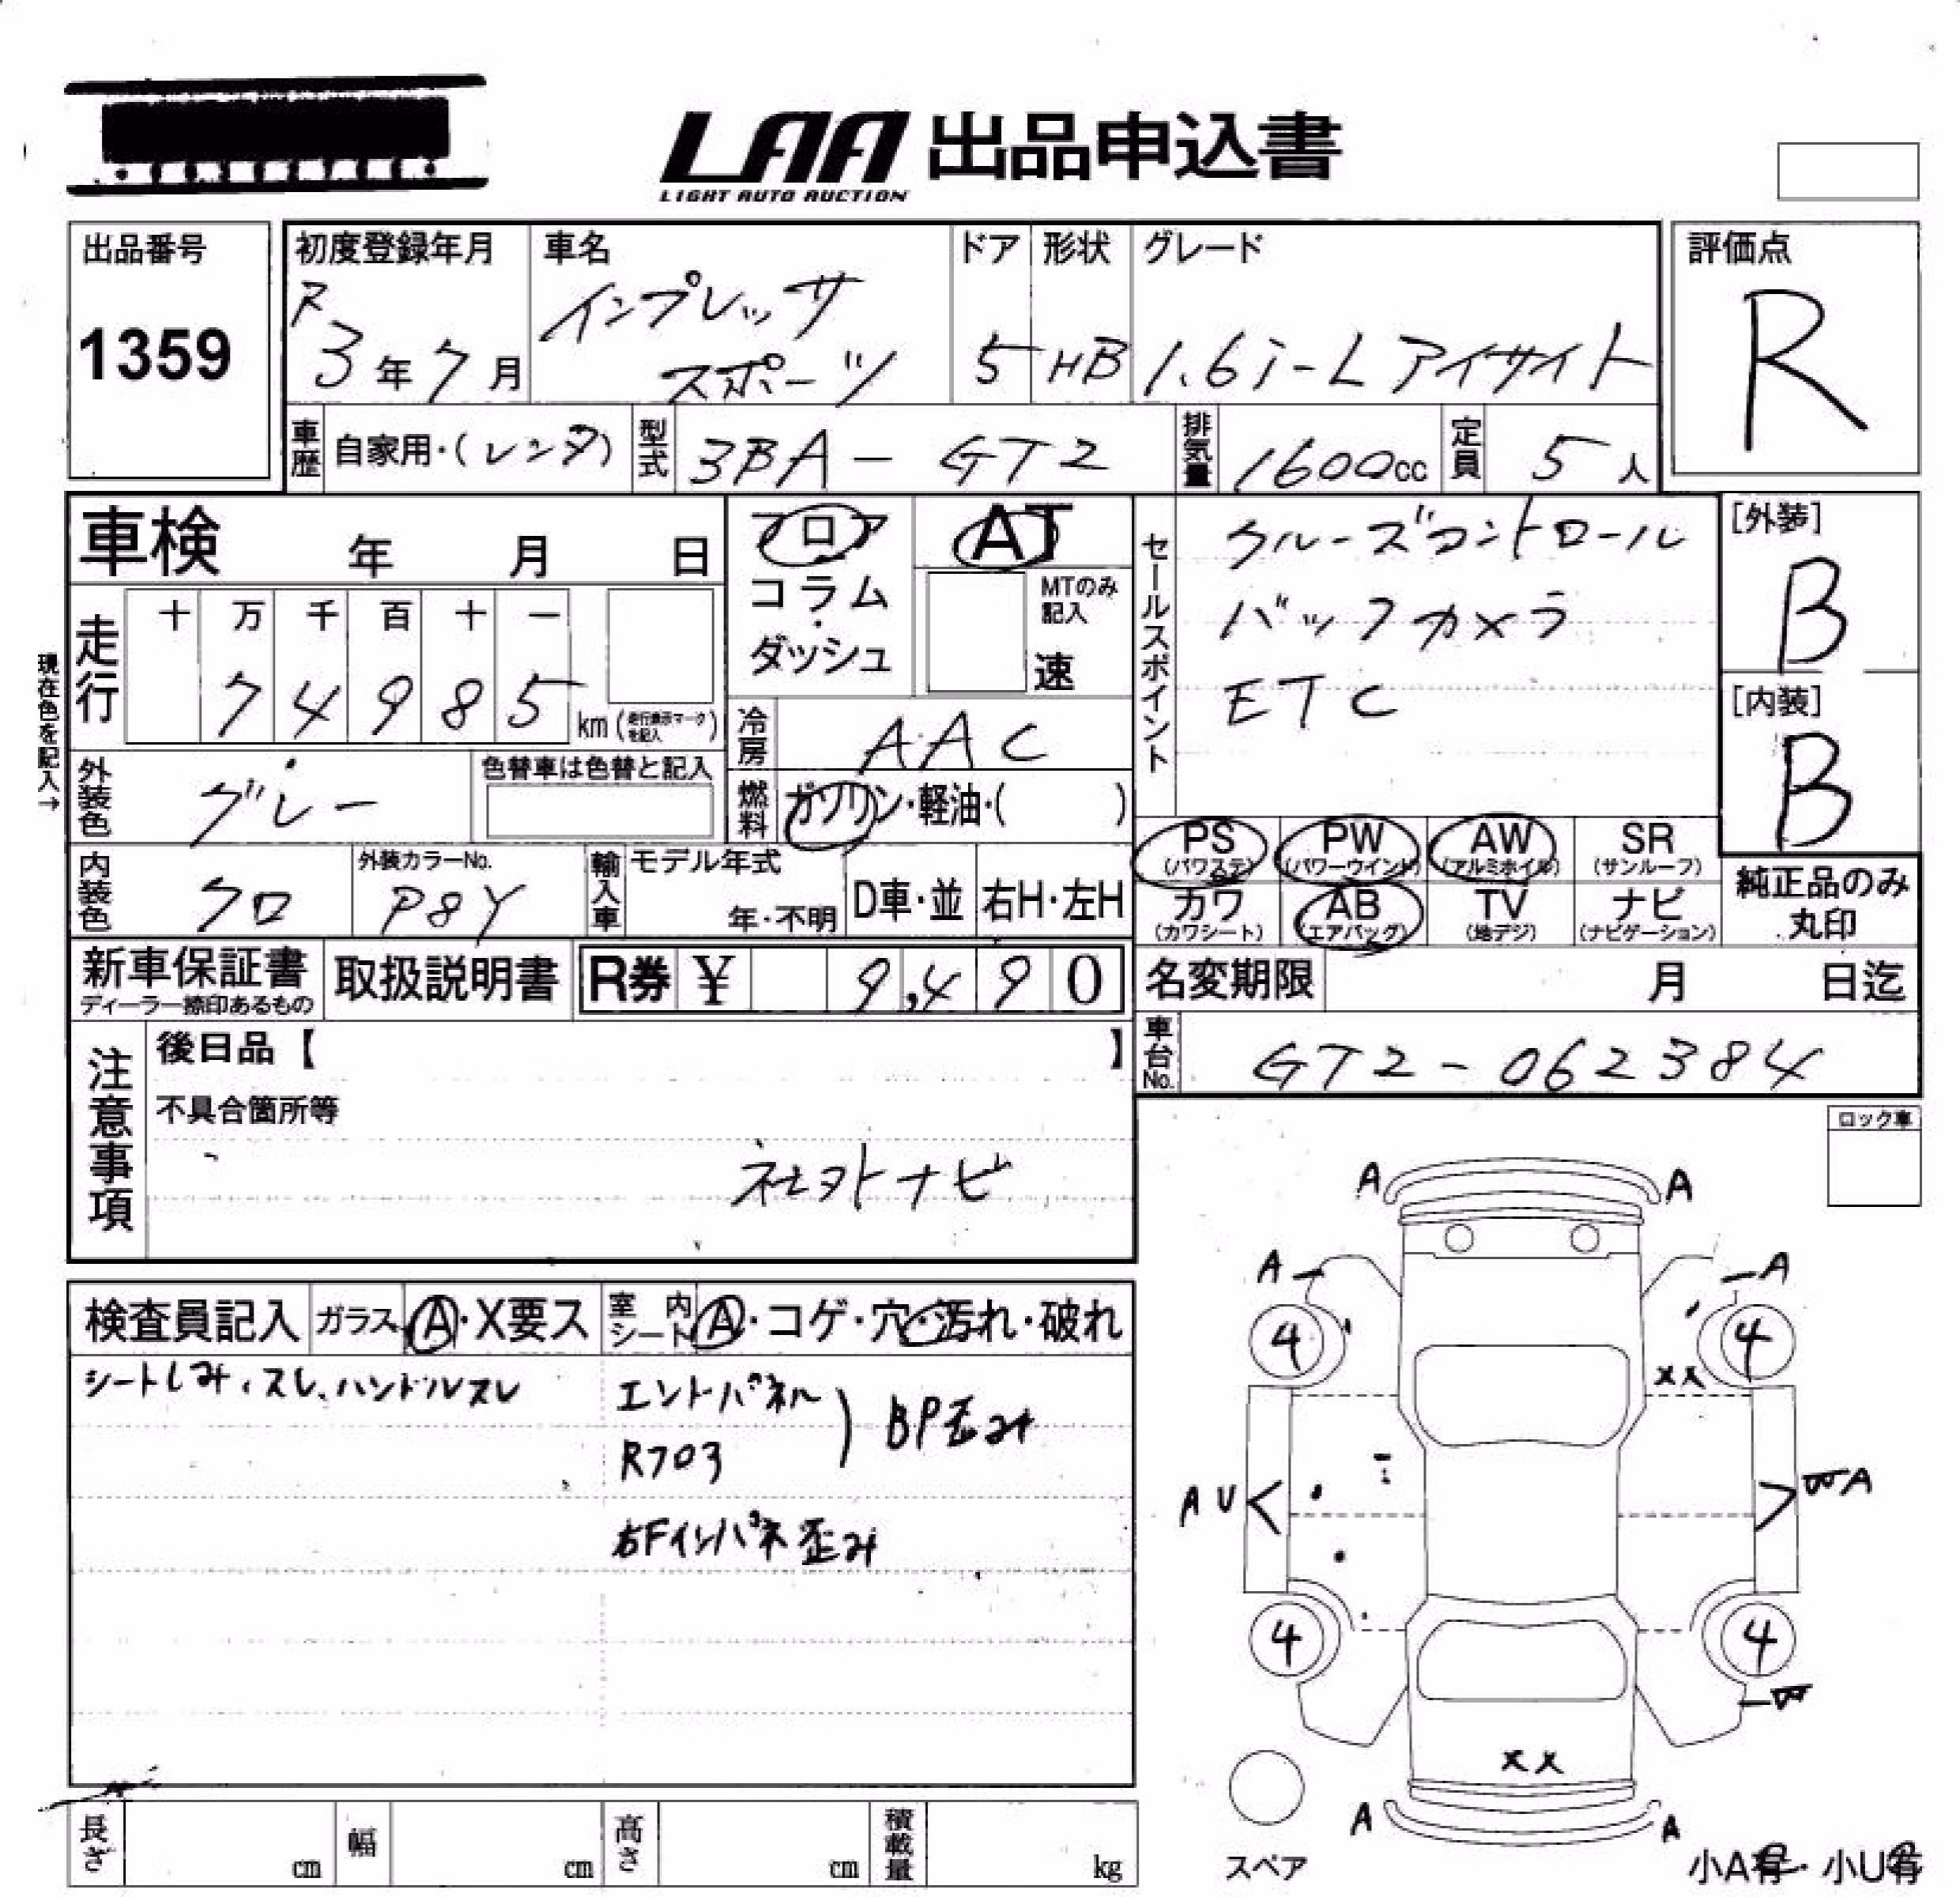 LAA 出品申込書
LIGHT AUTO AUCTION
出品番号
1359
初度登録年月
R
3年7月
車名
インプレッサ
スポーツ
ドア
5
形状
HB
グレード
1.6i-L アイサイト
評価点
R
車歴
自家用・(レンタ)
型式
3BA - GT2
排気量
1600cc
定員
5人
車検 年 月 日
フロア
コラム
・
ダッシュ
AT
MTのみ
記入
速
セールスポイント
クルーズコントロール
バックカメラ
ETC
[外装]
B
[内装]
B
現在色を記入→
走行
十 万 千 百 十 一
7 4 9 8 5
km(走行表示マークを記入)
冷房
AAC
外装色
グレー
色替車は色替と記入
燃料
ガソリン・軽油・( )
PS
(パワステ)
PW
(パワーウインド)
AW
(アルミホイル)
SR
(サンルーフ)
カワ
(カワシート)
AB
(エアバッグ)
TV
(地デジ)
ナビ
(ナビゲーション)
純正品のみ
丸印
内装色
クロ
外装カラーNo.
P8Y
輸入車
モデル年式
年・不明
D車・並
右H・左H
新車保証書
ディーラー捺印あるもの
取扱説明書
R券 ¥ 9,490
名変期限 月 日迄
車台No.
GT2-062384
注意事項
後日品【 】
不具合箇所等
社外ナビ
ロック車
検査員記入
ガラス
A・X要ス
室内シート
A・コゲ・穴・汚れ・破れ
シートしみ、スレ、ハンドルスレ
エンドパネル
R フロア
BP歪み
右Fインパネ歪み
A A
A A
4 4
XX
AU
WA
4 4
W
XX
A A
スペア
小A有・小U有
長さ cm
幅 cm
高さ cm
積載量 kg